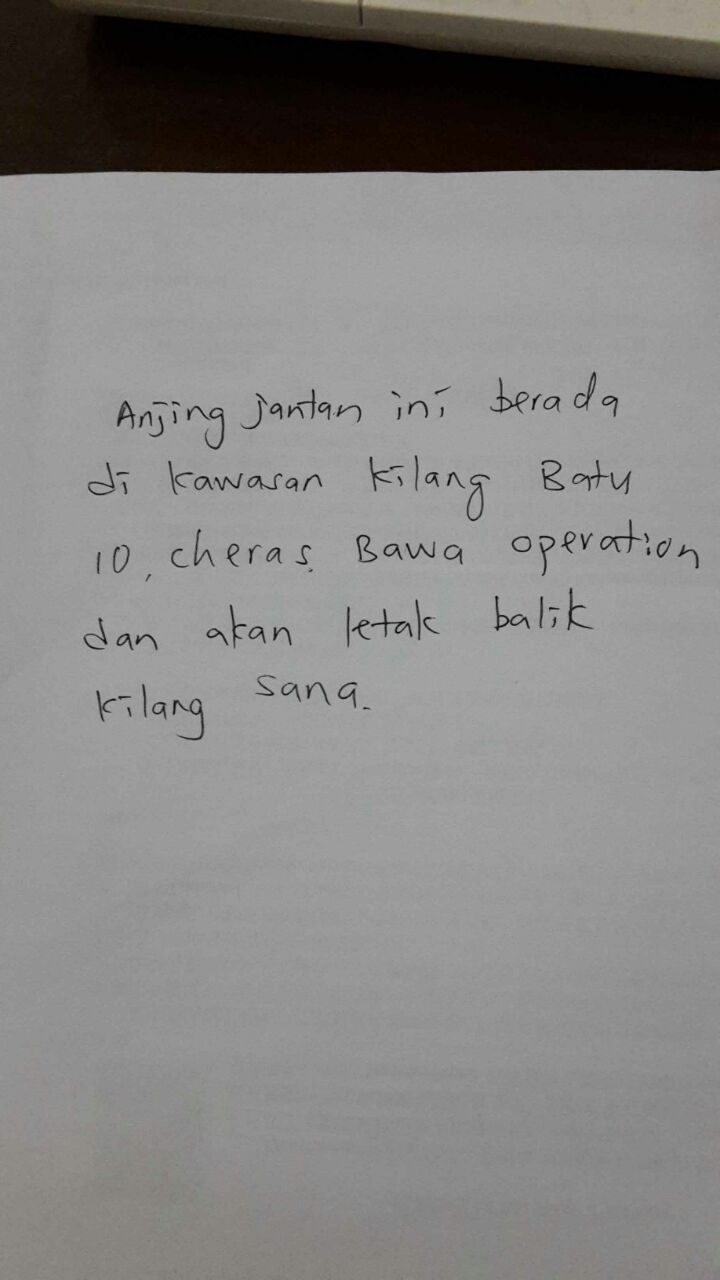 Anjing jantan ini berada
di kawasan kilang Batu
10, cheras. Bawa operation
dan akan letak balik
kilang sana.